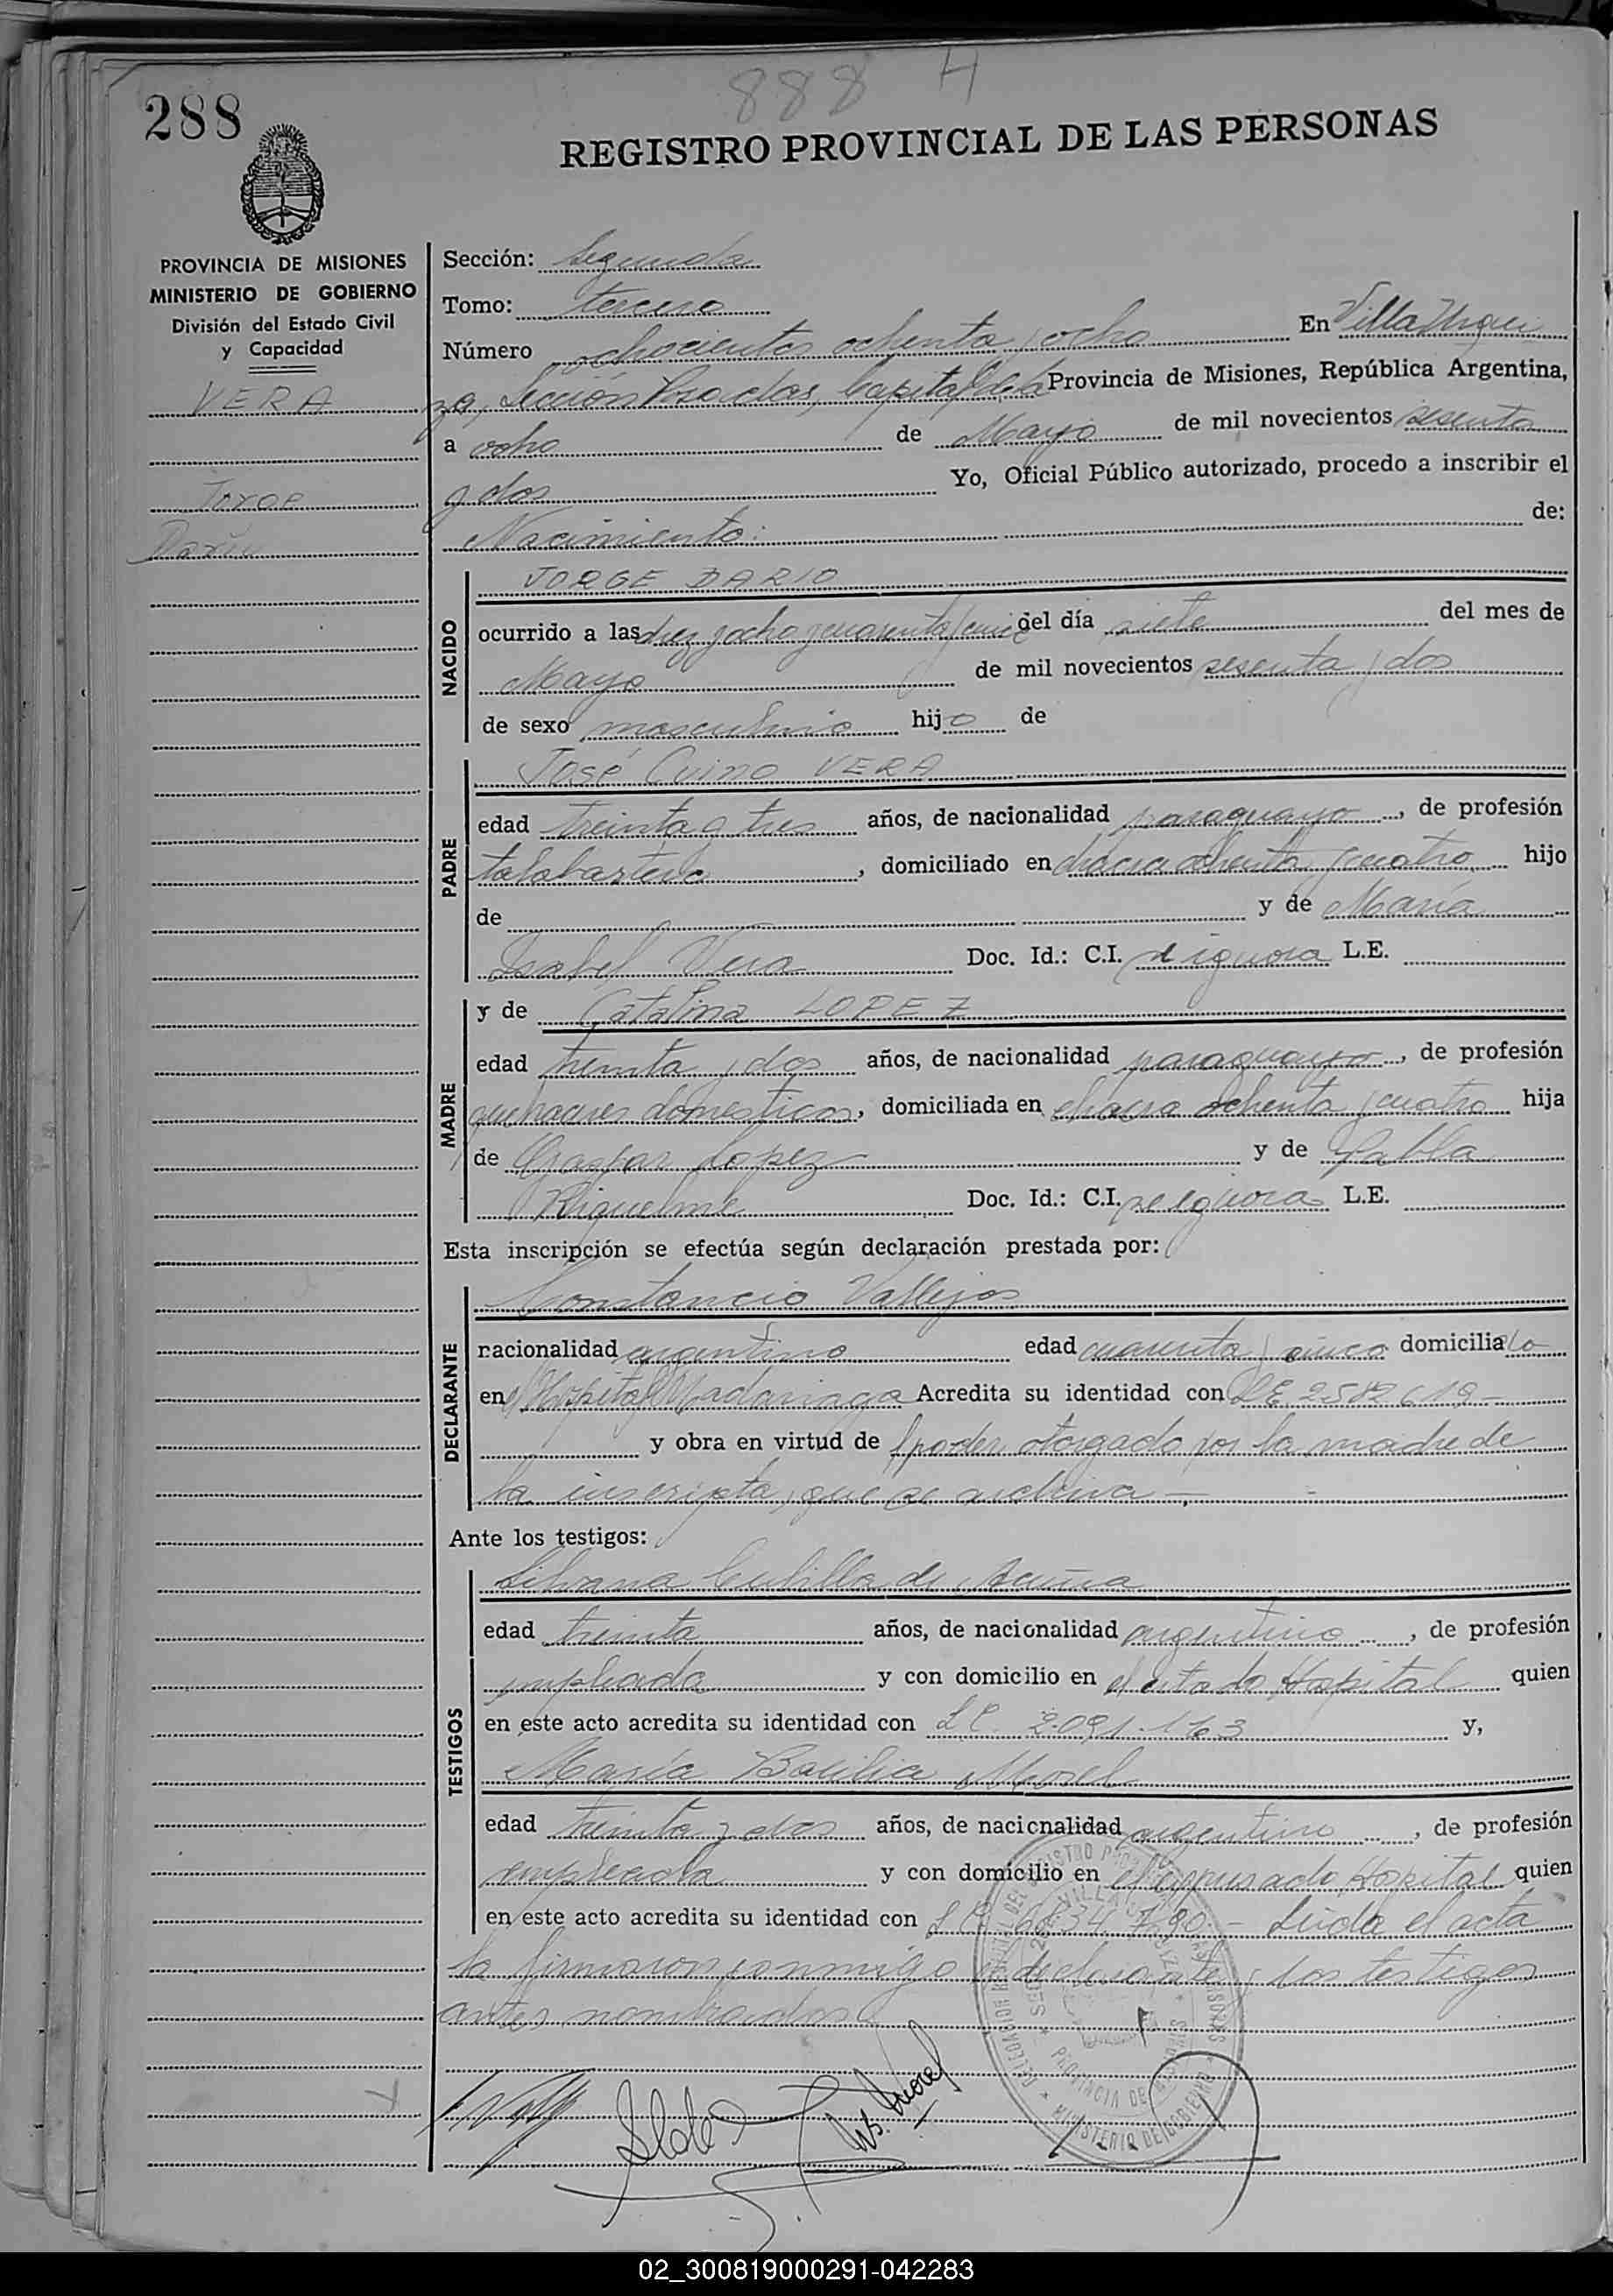 888 H
288
REGISTRO PROVINCIAL DE LAS PERSONAS
PROVINCIA DE MISIONES
MINISTERIO DE GOBIERNO
División del Estado Civil
y Capacidad
VERA
Jorge
Darío
Sección: Segunda
Tomo: tercero
Número ochocientos ochenta y ocho En Villa Urqui
za, Sección Posadas, Capital de la Provincia de Misiones, República Argentina,
a ocho de Mayo de mil novecientos sesenta
y dos Yo, Oficial Público autorizado, procedo a inscribir el
Nacimiento: de:
NACIDO
JORGE DARIO
ocurrido a las diez y ocho y cuarenta y cinco del día siete del mes de
Mayo de mil novecientos sesenta y dos
de sexo masculino hijo de
PADRE
José VERA
edad treinta y tres años, de nacionalidad paraguayo, de profesión
talabartero, domiciliado en chacra ochenta y cuatro hijo
de y de María
Isabel Vera Doc. Id.: C.I. se ignora L.E.
MADRE
y de Catalina LOPEZ
edad treinta y dos años, de nacionalidad paraguaya, de profesión
quehaceres domesticos, domiciliada en chacra ochenta y cuatro hija
de Gaspar Lopez y de Pabla
Riquelme Doc. Id.: C.I. se ignora L.E.
Esta inscripción se efectúa según declaración prestada por:
DECLARANTE
Constancio Vallejos
nacionalidad argentino edad cuarenta y cinco domiciliado
en el Hospital Madariaga Acredita su identidad con LE 2582619-
y obra en virtud de poder otorgado por la madre de
la inscripta, que se archiva -
Ante los testigos:
TESTIGOS
Silvana de Acuña
edad treinta años, de nacionalidad argentina, de profesión
empleada y con domicilio en el citado Hospital quien
en este acto acredita su identidad con LC. 2.091.163 y,
María Basilia Morel
edad treinta y dos años, de nacionalidad argentina, de profesión
empleada y con domicilio en el expresado Hospital quien
en este acto acredita su identidad con LC 6834790.- Leída el acta
la firmaron conmigo el declarante y los testigos
antes nombrados
MINISTERIO DE GOBIERNO
PROVINCIA DE MISIONES
02_300819000291-042283